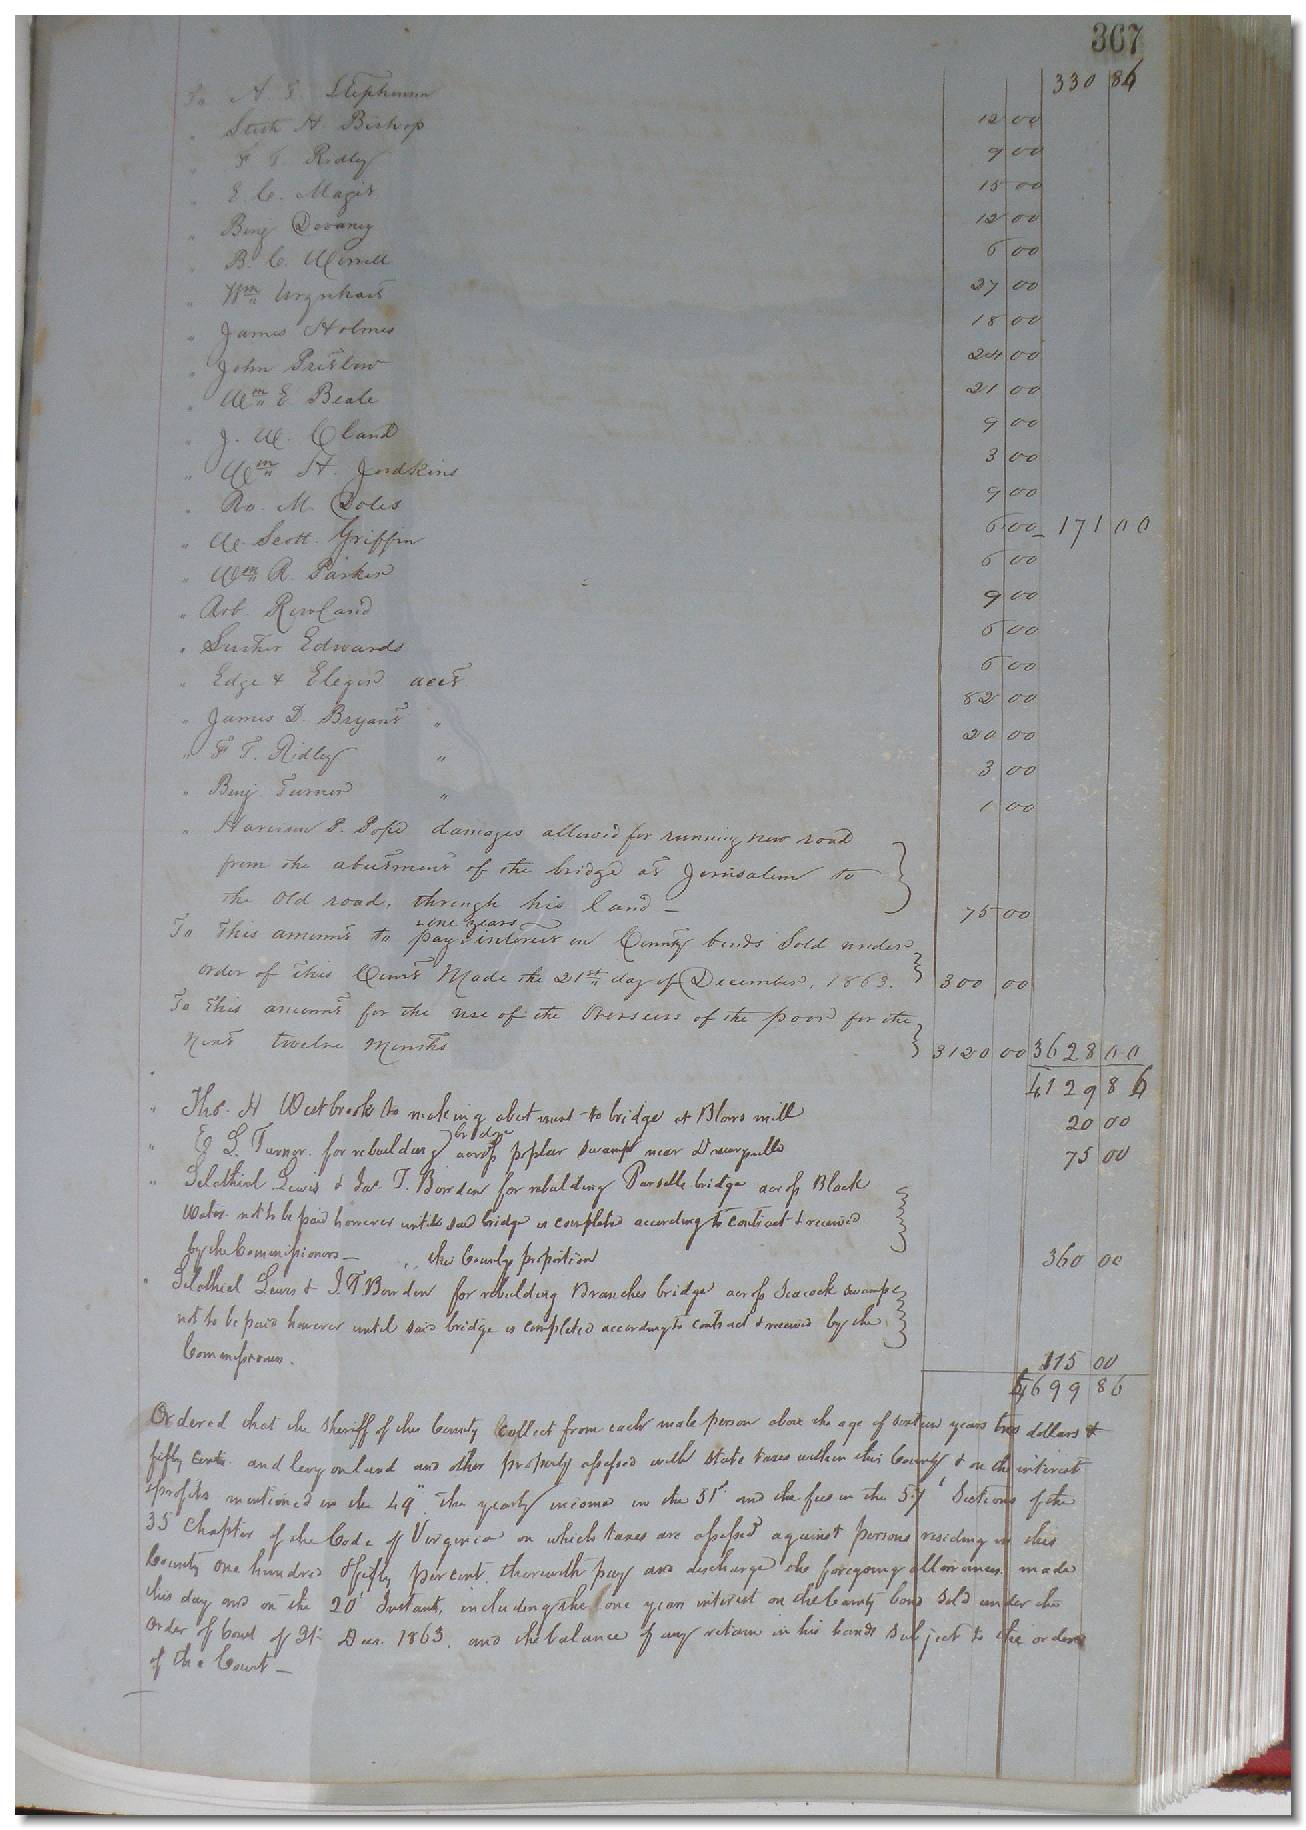 367
330 86
To A. S. Stephenson 12 00
" H. Bishop 9 00
" F T Ridley 15 00
" E. C. 12 00
" Benj Devany 6 00
" B. C. Worrell 27 00
" Wm Urquhart 18 00
" James Holmes 24 00
" John Pretlow 21 00
" Wm E. Beale 9 00
" J. W. Claud 3 00
" Wm H. Jordkins 9 00
" Ro. M. Doles 6 00 171 00
" W Scott Griffin 6 00
" Wm R. Parker 9 00
" Arb. Rowland 6 00
" Edwards 6 00
" Edge & acct 82 00
" James D. Bryant " 20 00
" F T. Ridley " 3 00
" Benj Turner " 1 00
" Harrison P. Pope damages allowed for running new road
from the abutment of the bridge at Jerusalem to
the old road, through his land — 75 00
one years
To this amount to pay interest on County bonds sold under
order of this Court Made the 21st day of December, 1863. 300 00
To this amount for the use of the Overseers of the poor for the
next twelve months 3120 00 3628 00
4129 86
" Thos. H Westbrook to making abutment to bridge at Blows mill 20 00
bridge
" E L. Turner for rebuilding across poplar swamp near Drewrysville 75 00
" Selathiel Lewis & Jas. T. Bowden for rebuilding bridge across Black
Water not to be paid however until said bridge is completed according to contract & received
by the Commissioners — the County proportion 360 00
" Selathiel Lewis & J. T Bowden for rebuilding Branches bridge across Seacock swamp
not to be paid however until said bridge is completed according to contract & received by the
Commissioners. 115 00
4699 86
Ordered that the Sheriff of this County collect from each male person above the age of sixteen years two dollars &
fifty cents and levy on land and other property assessed with state taxes within this County & on the interest
& profits mentioned in the 49" the yearly income in the 51st and the fees in the 57' Sections of the
35 Chapter of the Code of Virginia on which taxes are assessed against persons residing in this
County one hundred & fifty per cent. therewith pay and discharge the foregoing allowances made
this day and on the 20' Instant, including the one years interest on the County bond sold under the
order of Court of 21st Decr. 1863. and the balance if any retain in his hands subject to the order
of the Court —